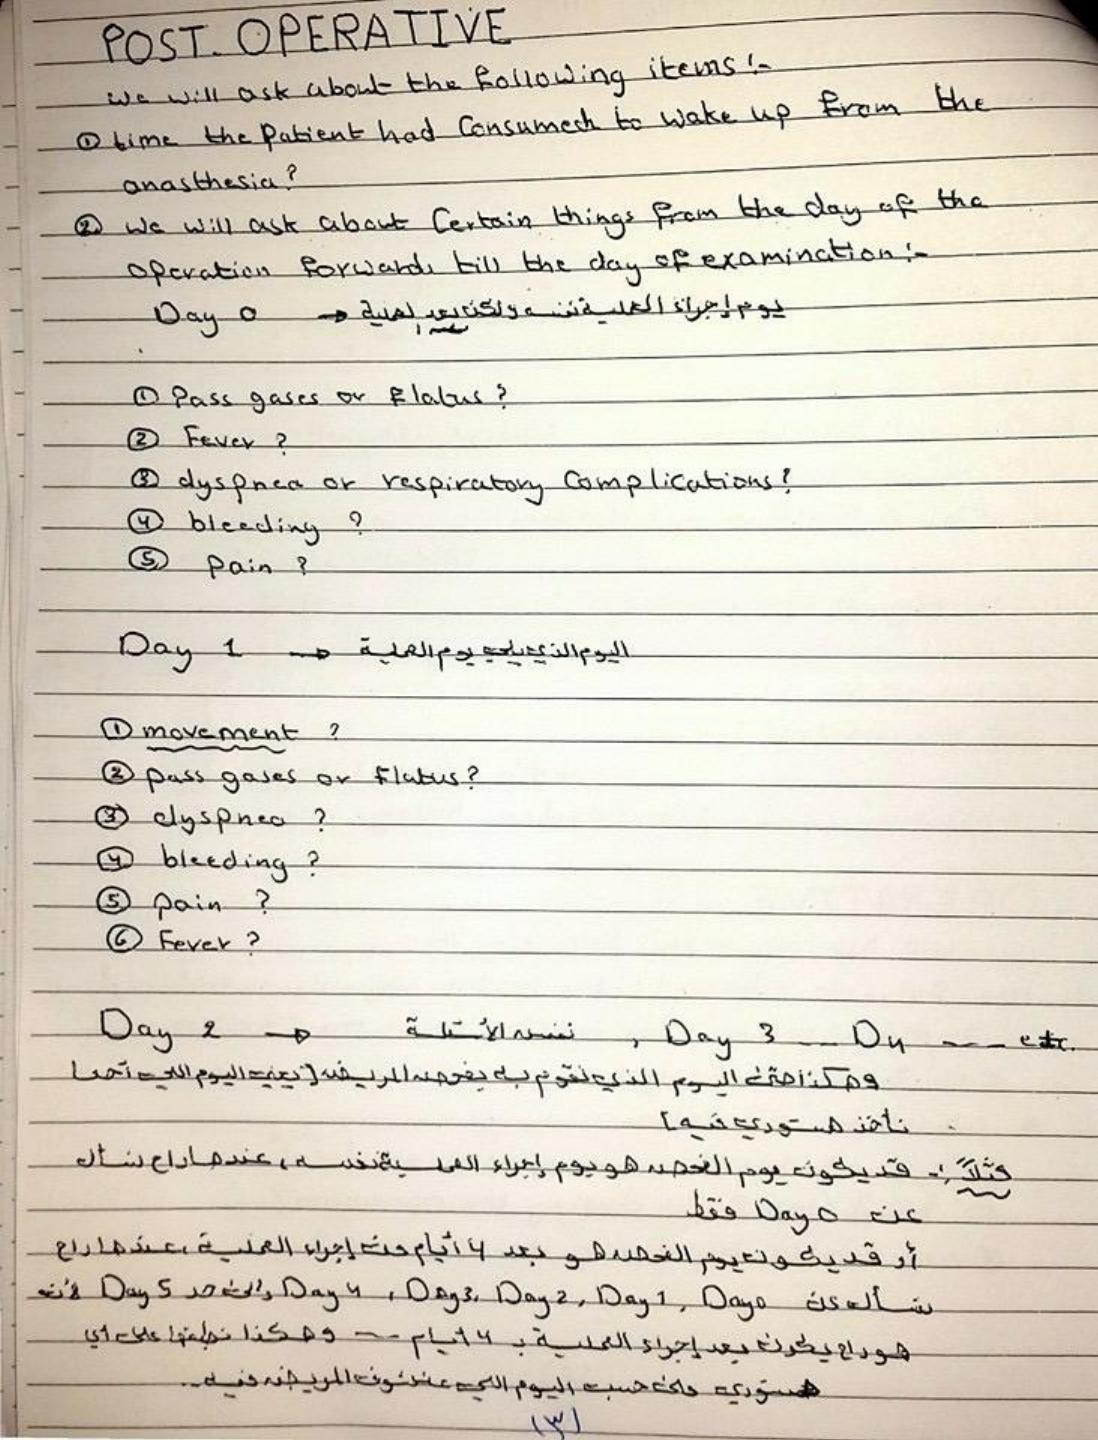 POST. OPERATIVE
we will ask about the following items :-
① time the patient had Consumed to wake up from the
anasthesia ?
② we will ask about Certain things from the day of the
operation forwards till the day of examination :-
Day 0 → يوم إجراء العملية نفسه ولكن بعد العملية
① Pass gases or flatus ?
② Fever ?
③ dyspnea or respiratory Complications ?
④ bleeding ?
⑤ Pain ?
Day 1 → اليوم الذي يلي يوم العملية
① movement ?
② pass gases or flatus ?
③ dyspnea ?
④ bleeding ?
⑤ pain ?
⑥ Fever ?
Day 2 → نفس الأسئلة , Day 3 ... D4 --- etc.
وهكذا حتى اليوم الذي نقوم به بفحص المريض [ يعني اليوم اللي
نأخذ هستوري فيه ]
مثلاً :- قد يكون يوم الفحص هو يوم إجراء العملية نفسه ، عندها راح نسأل
عن Day 0 فقط
أو قد يكون يوم الفحص هو بعد 4 أيام من إجراء العملية ، عندها راح
نسأله عن Day 0 , Day 1 , Day 2 , Day 3 , Day 4 Day 5 لأنه
هو راح يكون بعد إجراء العملية بـ 4 أيام --- وهكذا نطبقها على أي
هستوري حسب اليوم اللي المريض فيه ..
(٣)